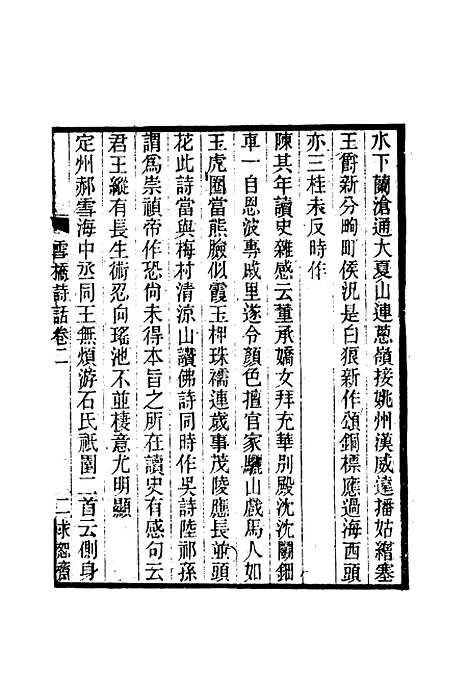 水下蘭滄通大夏山連蔥嶺接姚州漢威遠播姑繒塞
王爵新分昫町侯況是白狼新作頌銅標應過海西頭
亦三桂未反時作
陳其年讀史雜感云董承嬌女拜充華別殿沈沈鬬鈿
車一自恩波專戚里遂令顏色擅官家驪山戲馬人如
玉虎圈當熊臉似霞玉柙珠襦連歲事茂陵應長並頭
花此詩當與梅村清涼山讚佛詩同時作吳詩陸祁孫
謂爲崇禎帝作恐尙未得本旨之所在讀史有感句云
君王縱有長生術忍向瑤池不並棲意尤明顯
定州郝雪海中丞同王無煩游石氏祇園二首云側身
雪橋詩話卷二
二
求恕齋